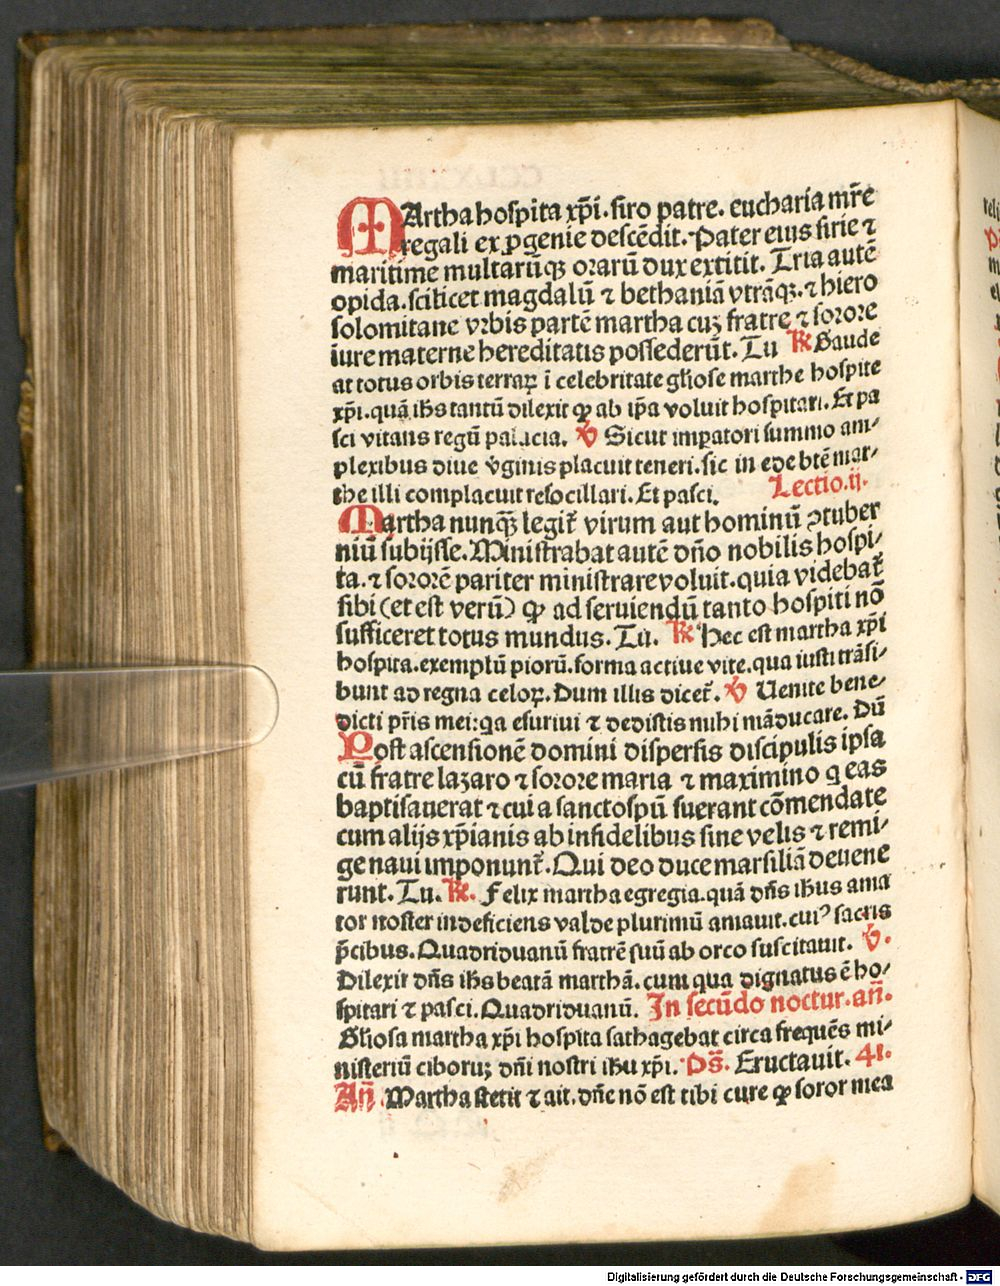 MArtha hospita xp̄i. siro patre. eucharia mr̄e
regali ex ꝓgenie descēdit. Pater eius sirie ⁊
maritime multarūqꝫ orarū dux extitit. Tria autē
opida. scilicet magdalū ⁊ bethaniā vtrāqꝫ. ⁊ hiero
solomitane vrbis partē martha cuꝫ fratre ⁊ sorore
iure materne hereditatis possederūt. Tu ℟ Gaude
at totus orbis terraꝝ ī celebritate gl̄iose marthe hospite
xp̄i. quā ih̄s tantū dilexit ꝙ ab ip̄a voluit hospitari. Et pa
sci vitans regū palacia. ℣ Sicut imꝑatori summo am-
plexibus diue v̓ginis placuit teneri. sic in ede btē mar-
the illi complacuit refocillari. Et pasci. Lectio. ij.
Martha nunqꝫ̄ legit̄ virum aut hominū ꝯtuber
niū subijsse. Ministrabat autē dn̄o nobilis hospi-
ta. ⁊ sororē pariter ministrare voluit. quia videbat̄
sibi (et est verū) ꝙ ad seruiendū tanto hospiti nō
sufficeret totus mundus. Tu. ℟ Hec est martha xp̄i
hospita. exemplū piorū. forma actiue vite. qua iusti trāsi-
bunt ad regna celoꝝ. Dum illis dicet̄. ℣ Uenite bene-
dicti pr̄is mei: qa esuriui ⁊ dedistis mihi māducare. Dū
Post ascensionē domini dispersis discipulis ipsa
cū fratre lazaro ⁊ sorore maria ⁊ maximino q eas
baptisauerat ⁊ cui a sancto spū fuerant cōmendate
cum alijs xp̄ianis ab infidelibus sine velis ⁊ remi-
ge naui imponunt̄. Qui deo duce marsiliā deuene
runt. Tu. ℟. Felix martha egregia. quā dn̄s ih̄us ama
tor noster indeficiens valde plurimū amauit. cuiꝰ sacris
p̄cibus. Quadriduanū fratrē suū ab orco suscitauit. ℣.
Dilexit dn̄s ih̄s beatā marthā. cum qua dignatus ē ho-
spitari ⁊ pasci. Quadriduanū. In secūdo noctur. an̄.
Gl̄iosa martha xp̄i hospita sathagebat circa frequēs mi-
nisteriū ciboruꝫ dn̄i nostri ih̄u xp̄i. Ps̄. Eructauit. 41.
An̄. Martha stetit ⁊ ait. dn̄e nō est tibi cure ꝙ soror mea
Digitalisierung gefördert durch die Deutsche Forschungsgemeinschaft - DFG